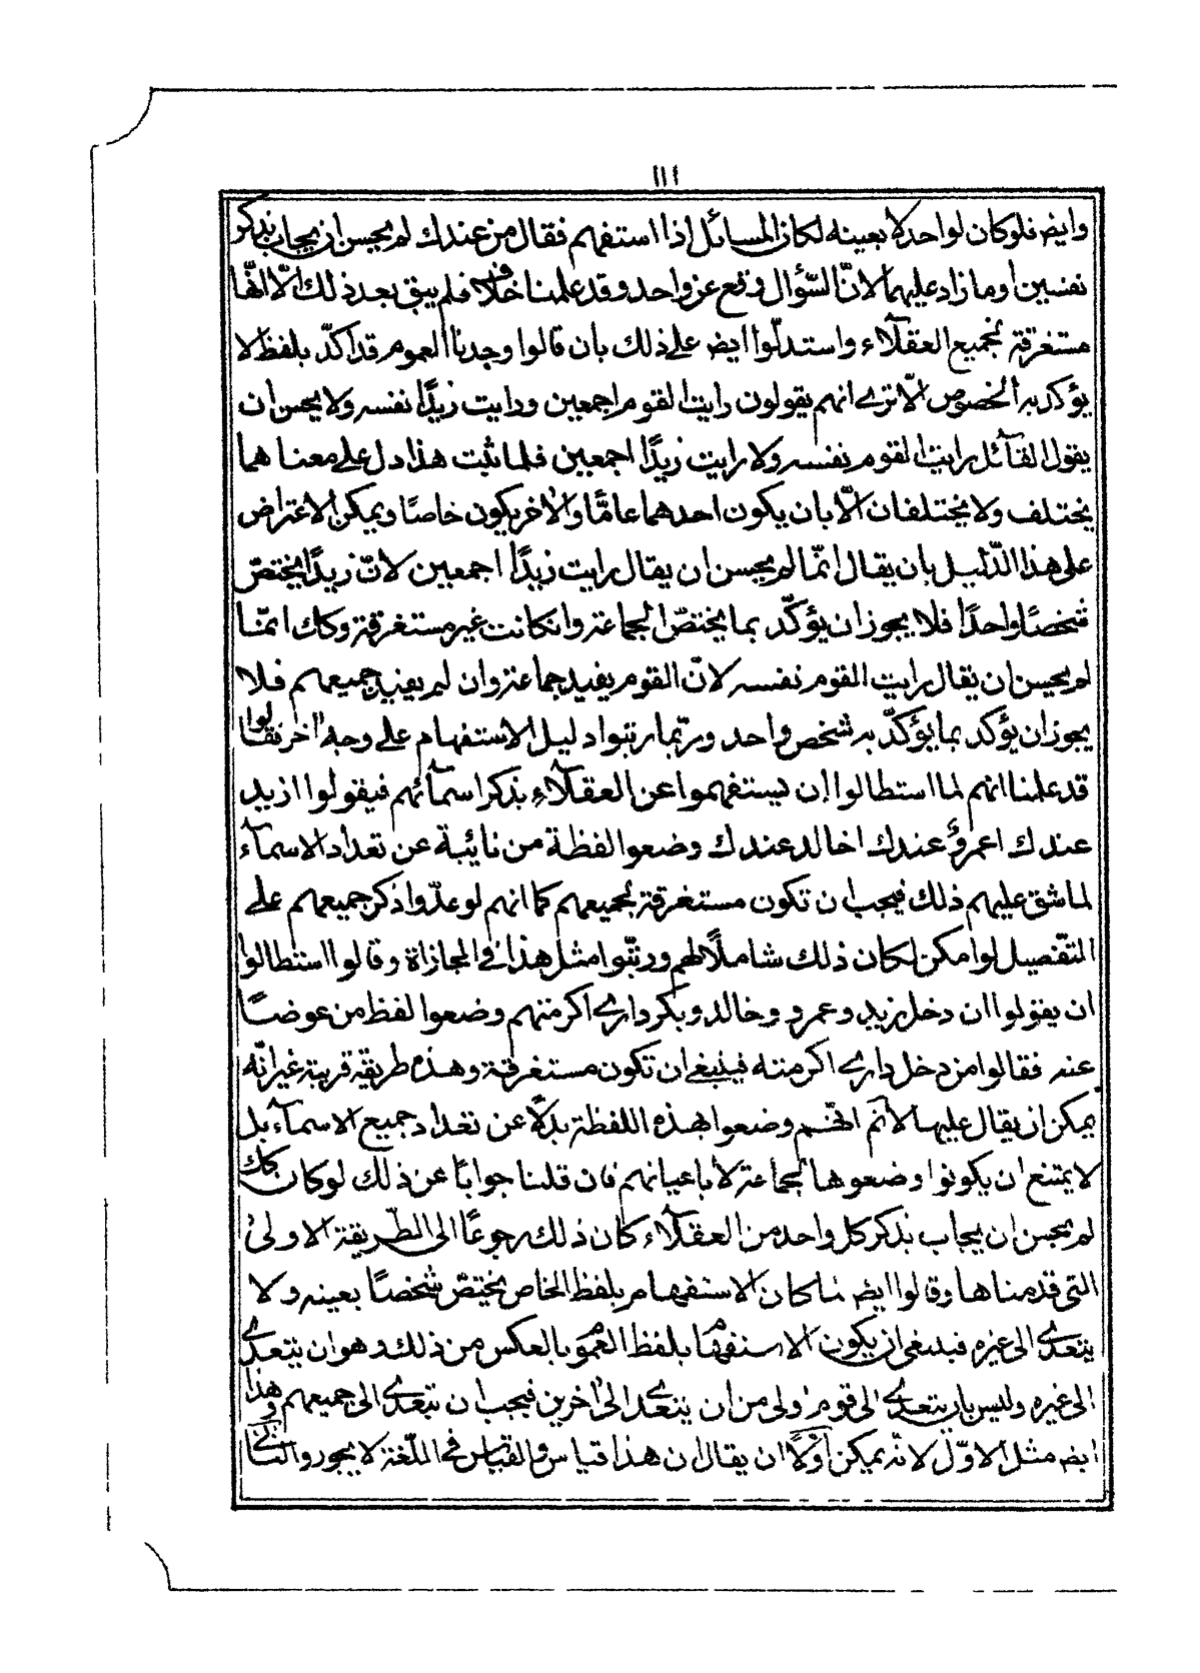 ١١١
وايضہ فلو كان لواحد لا بعينه لكان المسائل اذا استفهم فقال من عندك لم يحسن ان يجاب بذكر
نفسين او ما زاد عليهما لانّ السّؤال وقع عن واحد وقد علمنا خلافه فلم يبق بعد ذلك الّا انّها
مستغرقة لجميع العقلآء واستدلّوا ايضہ على ذلك بان قالوا وجدنا العموم قد اكّد بلفظ لا
يؤكد به الخصوص الّا ترى انهم يقولون رايت القوم اجمعين ورايت زيدًا نفسه ولا يحسن ان
يقول القآئل رايت القوم نفسه ولا رايت زيدًا اجمعين فلما ثبت هذا دل على معناهما
يختلف ولا يختلفان الّا بان يكون احدهما عامًّا والاخر يكون خاصًا ويمكن الاعتراض
على هذا الدّليل بان يقال انّما لم يحسن ان يقال رايت زيدًا اجمعين لانّ زيدًا يختصّ
شخصًا واحدًا فلا يجوز ان يؤكّد بما يختصّ الجماعة وان كانت غير مستغرقة وكك انمّا
لم يحسن ان يقال رايت القوم نفسه لانّ القوم يفيد جماعة وان لم يفيد جميعهم فلا
يجوز ان يؤكد بما يؤكدّ به شخص واحد وربّما رتبوا دليل الاستفهام على وجه اخر فقالوا
قد علمنا انهم لما استطالوا ان يستفهموا عن العقلآء بذكر اسمآئهم فيقولوا ازيد
عندك اعمروٌ عندك اخالد عندك وضعوا لفظة من نائبة عن تعداد الاسمآء
لما شق عليهم ذلك فيجب ان تكون مستغرقة لجميعهم كما انهم لو عدّوا ذكر جميعهم على
التفّصيل لو امكن لكان ذلك شاملًا لهم ورتّبوا مثل هذا في المجازاة وقالوا استطالوا
ان يقولوا ان دخل زيد وعمرو وخالد وبكر دارى اكرمتهم وضعوا لفظ من عوضًا
عنه فقالوا من دخل دارى اكرمته فينبغى ان تكون مستغرقة وهذه طريقة قريبة غير انّه
يمكن ان يقال عليها لانّم انّهم وضعوا هذه اللفظة بدلًا عن تعداد جميع الاسمآء بل
لا يمتنع ان يكونوا وضعوها لجماعة لا باعيانهم فان قلنا جوابًا عن ذلك لو كان كك
لم يحسن ان يجاب بذكر كل واحد من العقلآء كان ذلك رجوعًا الى الطّريقة الاولى
التى قدمناها وقالوا ايضہ لما كان الاستفهام بلفظ الخاص يختصّ شخصًا بعينه ولا
يتعدى الى غيره فينبغى ان يكون الاستفهام بلفظ العموم بالعكس من ذلك وهو ان يتعدى
الى غيره وليس بان يتعدى الى قوم اولى من ان يتعدى الى اخرين فيجب ان تتعدى الى جميعهم وهذا
ايضہ مثل الاوّل لانه يمكن اوّلًا ان يقال ان هذا قياس والقياس في اللّغة لا يجوز والثانى